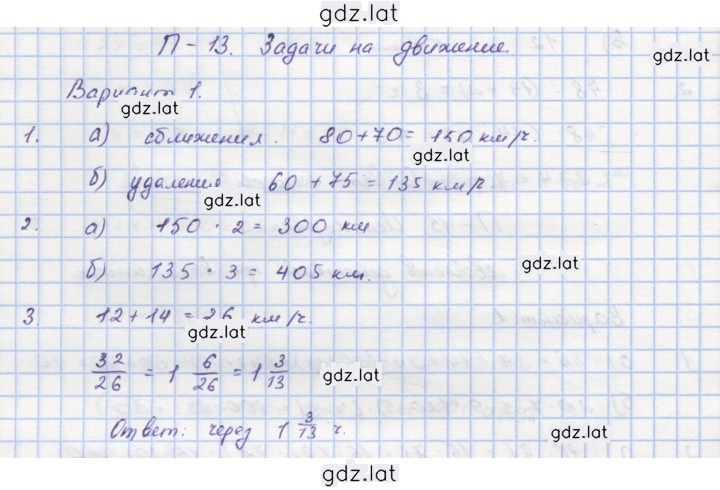 gdz.lat
П - 13. Задачи на движение.
gdz.lat
Вариант 1.
gdz.lat
1. а) сближения. 80 + 70 = 150 км/ч.
gdz.lat
б) удаления 60 + 75 = 135 км/ч.
gdz.lat
2. а) 150 · 2 = 300 км
б) 135 · 3 = 405 км.
gdz.lat
3. 12 + 14 = 26 км/ч.
gdz.lat
32/26 = 1 6/26 = 1 3/13
gdz.lat
Ответ: через 1 3/13 ч.
gdz.lat
gdz.lat